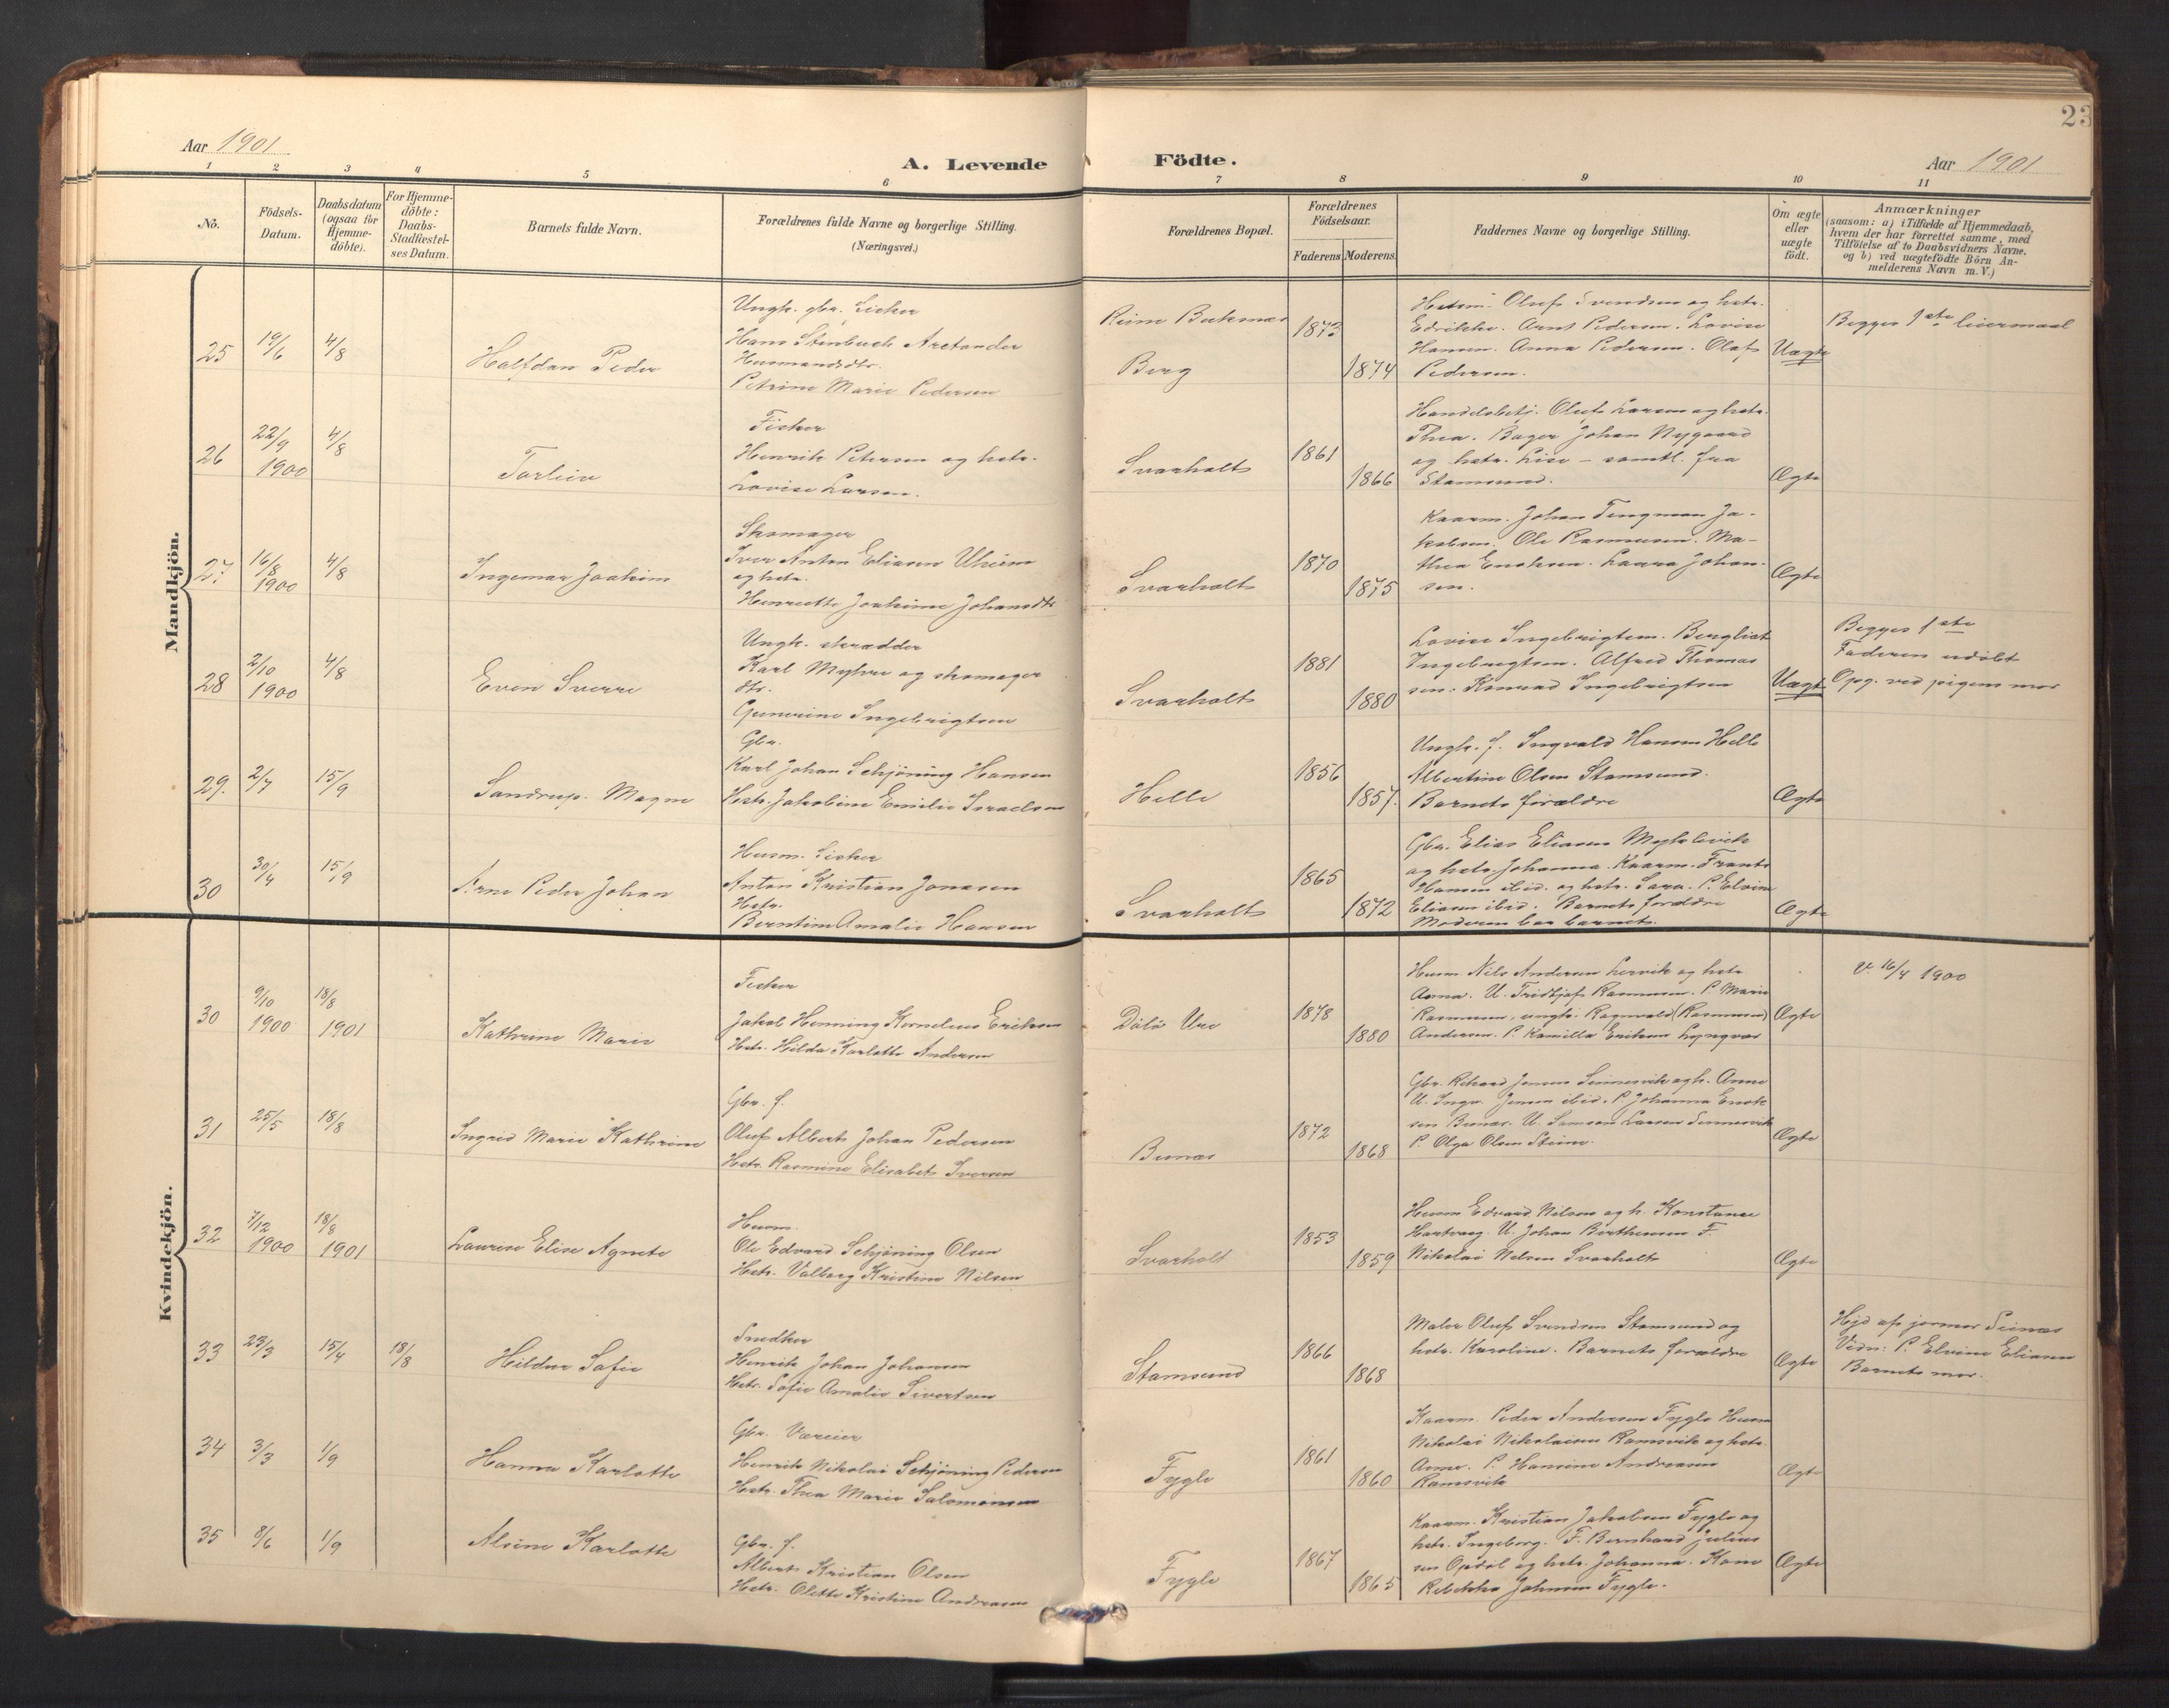 23
Aar 1901
A. Levende
Födte.
Aar 1901
1 2 3 4 5 6 7 8 9 10 11
No.
Födsels-
Datum.
Daabsdatum
(ogsaa for
Hjemme-
döbte).
For Hjemme-
döbte:
Daabs-
Stadfæstel-
ses Datum.
Barnets fulde Navn.
Forældrenes fulde Navne og borgerlige Stilling.
(Næringsvei.)
Forældrenes Bopæl.
Forældrenes
Födselsaar.
Faderens Moderens
Faddernes Navne og borgerlige Stilling.
Om ægte
eller
uægte
födt.
Anmærkninger
(saasom: a) i Tilfælde af Hjemmedaab,
hvem der har forrettet samme, med
Tilföielse af to Daabsvidners Navne.
og b) ved uægtefödte Börn An-
melderens Navn m. V.)
Mandkjön.
25 19/6 4/8
Halfdan Peder
Ungk. gbr. fisker
Hans Stenbuch Arctander
Husmandsdtr.
Petrine Marie Pedersen
Reine Buksnæs
Berg
1873
1874
Husm. Oluf Svendsen og hstr.
Edrikke. Arnt Pedersen. Lovise
Hansen. Anna Pedersen. Olaf
Pedersen.
Uægte
Begges 1ste leiermaal
26 22/9 1900 4/8
Torleiv
Fisker
Henrik Petersen og hstr.
Lovise Larsen.
Svarholt
1861
1866
Handelsbetj. Oluf Larsen og hstr.
Thea. Bager Johan Nygaard
og hstr. Lise – samtl. fra
Stamsund.
Ægte
27. 16/8 1900 4/8
Ingemar Joakim
Skomager
Iver Anton Eliasen
og hstr.
Henriette Joakime Johansdtr
Svarholt
1870
1875
Kaarm. Johan Tengman Ja-
kobsen. Ole Rasmussen. Ma-
thea Enoksen. Laura Johan-
sen.
Ægte
28 2/10 1900 4/8
Even Sverre
Ungk. skrædder
Karl Myhre og skomager
dtr.
Gunerine Ingebrigtsen
Svarholt
1881
1880
Lovise Ingebrigtsen. Bergliot
Ingebrigtsen. Alfred Thomas
sen. Konrad Ingebrigtsen
Uægte
Begges 1ste
Faderen udöbt
Opg. ved pigens mor
29. 2/7 15/9
Sandrup. Magne
Gbr.
Karl Johan Schjöning Hansen
Hstr. Jakobine Emilie Israelsen
Helle
1856
1857.
Ungk. f. Ingvald Hansen Helle
Albertine Olsen Stamsund.
Barnets forældre
Ægte
30 30/4 15/9
Arne Peder Johan
Husm. fisker
Anton Kristian Jonasen
Hstr.
Berntine Amalie Hansen
Svarholt
1865
1872
Gbr. Elias Eliasen Myklevik
og hstr. Johanna. Kaarm. Frants
Hansen ibid. og hstr. Sara. P. Elvine
Eliasen ibid. Barnets forældre
Moderen bar barnet.
Ægte
Kvindekjön.
30 9/10 1900 18/8 1901
Kathrine Marie
Fisker
Jakob Henning Kornelius Eriksen
Hstr. Hilda Karlotte Andersen
Ure
1878
1880
Husm. Nils Andersen Lervik og hstr
Anna. U. Fridtjof Rasmussen. P. Marie
Rasmussen, ungk. Ragnvald (Rasmussen)
Andersen. P. Kamilla Eriksen Lyngvær
Ægte
v. 16/4 1900
31 25/5 18/8
Ingrid Marie Kathrine
Gbr. f.
Oluf Albert Johan Pedersen
Hstr. Rasmine Elisabet Iversen
Bunæs
1872
1868
Gbr. Rikard Jensen Sennesvik og h. Anne
U. Ingv. Jensen ibid. P. Johanna Enok-
sen Bunæs. U. Samson Larsen Sennesvik
P. Olga Olsen Steine.
Ægte
32 7/12 1900 18/8 1901
Laurense Elise Agnete
Husm.
Ole Edvard Schjöning Olsen
Hstr. Valborg Kristine Nilsen
Svarholt
1853
1859
Husm Edvard Nilsen og h. Konstanse
Hartvaag. U. Johan Berthensen F.
Nikolai Nilsen Svarholt
Ægte
33 23/3 15/4 18/8
Hildur Sofie
Snedker
Henrik Johan Johansen
Hstr. Sofie Amalie Sivertsen
Stamsund
1866
1868
Maler Oluf Svendsen Stamsund og
hstr. Karoline. Barnets forældre
Ægte
Hjd af jormor Steinæs
Vidn: P. Elvine Eliasen
Barnets mor.
34 3/3 1/9
Hanna Karlotte
Gbr. Væreier
Henrik Nikolai Schjöning Pedersen
Hstr. Thea Marie Salomonsen
Fygle
1861
1860
Kaarm. Peder Andersen Fygle Husm
Nikolai Nikolaisen Ramsvik og hstr.
Anne. P. Hansine Andreasen
Ramsvik
Ægte
35 8/6 1/9
Alvine Karlotte
Gbr. f.
Albert Kristian Olsen
Hstr. Olette Kristine Andreasen
Fygle
1867
1865
Kaarm. Kristian Jakobsen Fygle og
hstr. Ingeborg. F. Bernhard Julius
sen Opdöl og hstr. Johanna. Kone
Rebekka Johnsen Fygle.
Ægte